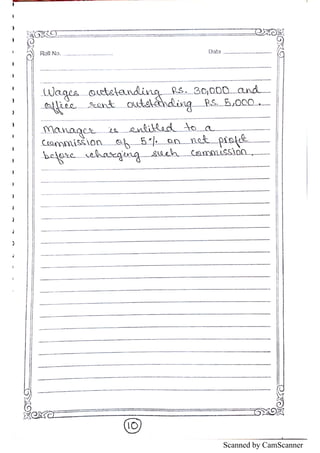 Roll No.
Date
Wages outstanding Rs. 30,000 and
office rent outstanding Rs 5,000.
Manager is entitled to a
commission of 5% on net profit
before charging such commission.
10
Scanned by CamScanner